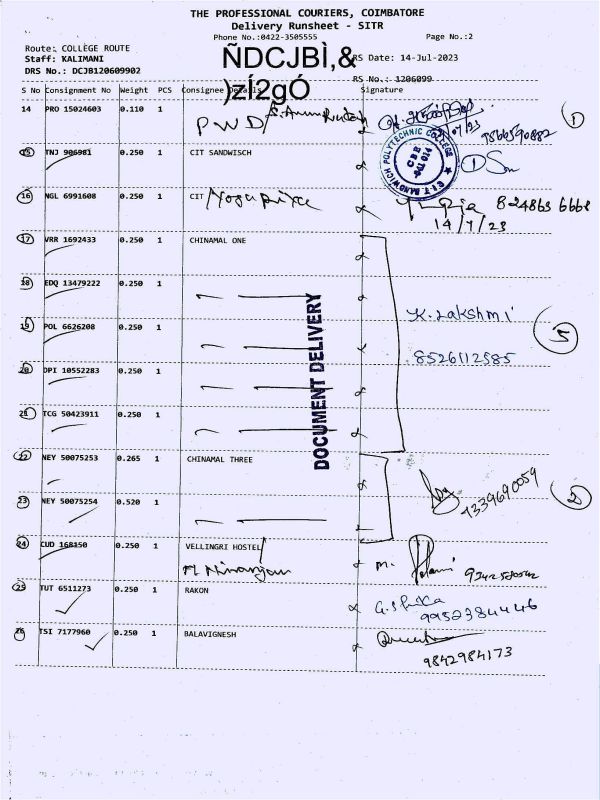 THE PROFESSIONAL COURIERS, COIMBATORE
Delivery Runsheet - SITR
Phone No.:0422-3505555 Page No.:2
Route: COLLEGE ROUTE
Staff: KALIMANI RS Date: 14-Jul-2023
DRS No.: DCJB120609902
ÑDCJBÌ,&
)zÍ2gÓ
RS No.: 1206099
S No Consignment No Weight PCS Consignee Details Signature
14 PRO 15024603 0.110 1 PWD/
9566590882
1
15 TNJ 906981 0.250 1 CIT SANDWISCH
CIT SANDWICH POLYTECHNIC COLLEGE
CBE
641 014
16 NGL 6991608 0.250 1 CIT
824863 6668
14/7/23
17 VRR 1692433 0.250 1 CHINAMAL ONE
18 EDQ 13479222 0.250 1
19 POL 6626208 0.250 1
K. Lakshmi
8526112585
5
DOCUMENT DELIVERY
20 DPI 10552283 0.250 1
21 TCG 50423911 0.250 1
22 NEY 50075253 0.265 1 CHINAMAL THREE
9339690059
2
23 NEY 50075254 0.520 1
24 CUD 168150 0.250 1 VELLINGRI HOSTEL/
M Niranjan
M.
25 TUT 6511273 0.250 1 RAKON
9952384446
26 TSI 7177960 0.250 1 BALAVIGNESH
9842984173